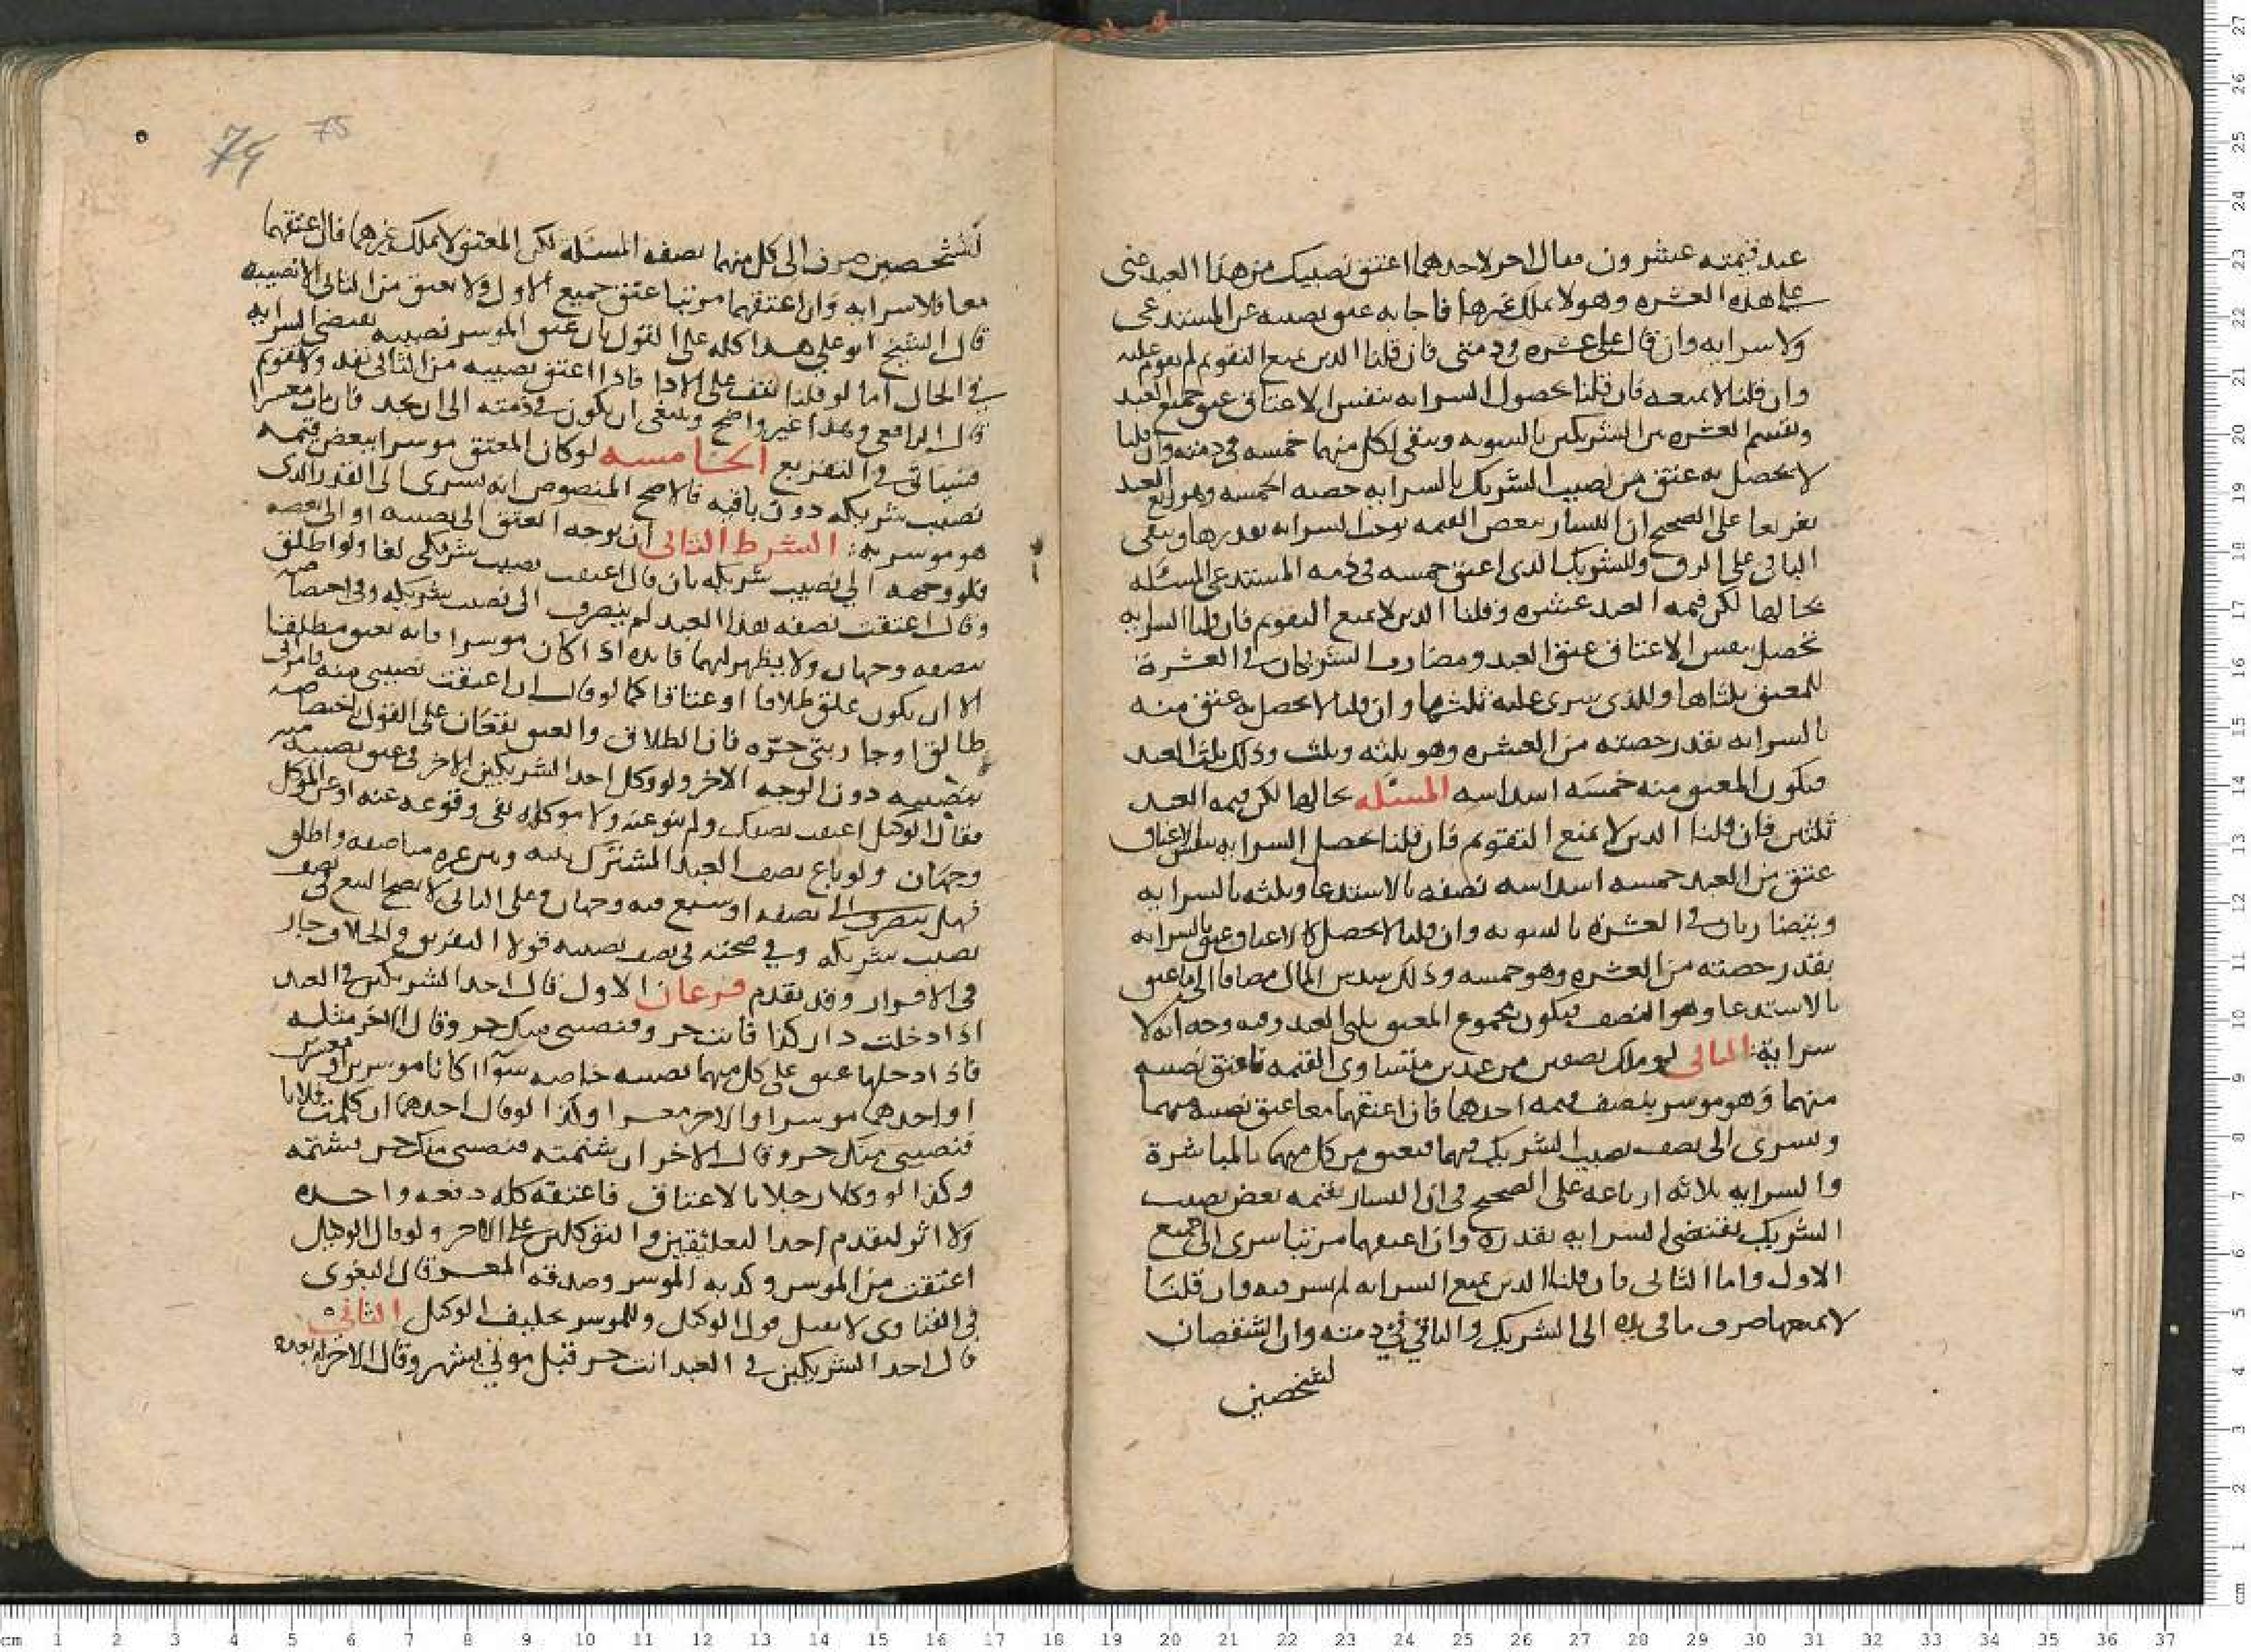 عبد قيمته عشرون فقال اخر لاحدهما اعتق نصيبك من هذا العبد عنى
على هذه العشره وهو لا يملك غيرها فاجابه عتق نصيبه عن المستدعى
ولا سرايه وان قال على عشره فى ذمتى فان قلنا الدين يمنع التقويم لم يقوم عليه
وان قلنا لا يمنعه فان قلنا بحصول السرايه بنفس الاعتاق عتق جميع العبد
وتقسم العشره بين الشريكين بالسويه ويبقى لكل منهما خمسه فى ذمته وان قلنا
لا يحصل به عتق من نصيب الشريك بالسرايه حصه الخمسه وهو ربع العبد
تفريعا على الصحيح ان اليسار ببعض القيمه يوجب السرايه بقدرها ويبقى
الباقى على الرق وللشريك الذى اعتق خمسه فى ذمه المستدعى المسئله
بحالها لكن قيمه العبد عشره وقلنا الدين لا يمنع التقويم فان قلنا السرايه
تحصل بنفس الاعتاق عتق العبد ومضارب الشريكان فى العشرة
للمعتق ثلثاها وللذى سرى عليه ثلثها وان قلنا لا يحصل به عتق منه
بالسرايه بقدر حصته من العشره وهو ثلثه وثلث وذلك ثلث العبد
فيكون المعتق منه خمسه اسداسه المسئله بحالها لكن قيمه العبد
ثلثين فان قلنا الدين لا يمنع التقويم فان قلنا تحصل السرايه بنفس الاعتاق
عتق من العبد خمسه اسداسه نصفه بالاستدعا وثلثه بالسرايه
ويتضاربان فى العشرة بالسويه وان قلنا لا يحصل بالاعتاق عتق بالسرايه
بقدر حصته من العشره وهو خمسه وذلك سدس المال مضافا الى ما عتق
بالاستدعا وهو النصف فيكون مجموع المعتق ثلثى العبد وفيه وجه انه لا
سراية الثانى لو ملك نصفين من عبدين متساوى القيمه فاعتق نصيبه
منهما وهو موسر بنصف قيمه احدهما فان اعتقهما معا عتق نصيبه منهما
وسرى الى نصف نصيب الشريك فيهما فيعتق من كل منهما بالمباشرة
والسرايه ثلاثه ارباعه على الصحيح فى ان اليسار بقيمه بعض نصيب
الشريك يقتضى السرايه بقدره وان اعتقهما مرتبا سرى الى جميع
الاول واما الثانى فان قلنا الدين يمنع السرايه لم يسر فيه وان قلنا
لا يمنعها صرف ما فى يده الى الشريك والباقى فى ذمته وان الشقصان
لشخصين
75 75
لشخصين صرف الى كل منهما نصفه المسئله لكن المعتق لا يملك غيرهما فان اعتقهما
معا فلا سرايه وان اعتقهما مرتبا عتق جميع الاول ولا يعتق من الثانى الا نصيبه
قال الشيخ ابو على هذا كله على القول بان عتق الموسر نصيبه يقتضى السرايه
فى الحال اما لو قلنا تقف على الادا فاذا اعتق نصيبه من الثانى نفذ ولا تقوم
قال الرافعى وهذا غير واضح وينبغى ان يكون فى ذمته الى ان يجد فان مات معسرا
فسياتى فى التفريع الخامسه لو كان المعتق موسرا ببعض قيمه
نصيب شريكه دون باقيه فالاصح المنصوص انه يسرى الى القدر الذى
هو موسر به الشرط الثانى ان يوجه العتق الى نصيبه او الى بعضه
فلو وجهه الى نصيب شريكه بان قال اعتقت نصيب شريكى لغا ولو اطلق
وقال اعتقت نصفه هذا العبد لم ينصرف الى نصيب شريكه وفى اختصاصه
بنصفه وجهان ولا يظهر لهما فايده اذا كان موسرا فانه يعتق مطلقا
الا ان يكون علق طلاقا او عتاقا كما لو قال ان اعتقت نصيبى منه فامراتى
طالق او جاريتى حرّه فان الطلاق والعتق يقعان على القول باختصاصه
بنصيبه دون الوجه الاخر ولو وكل احد الشريكين الاخر فى عتق نصيبه
فقال الوكيل اعتقت نصفك ولم ينو عنه ولا موكله ففى وقوعه عنه او عن الموكل
وجهان ولو باع نصف العبد المشترك بينه وبين غيره مناصفه واطلق
فهل ينصرف الى نصفه او يشيع فيه وجهان وعلى الثانى لا يصح البيع فى نصف
نصيب شريكه وفى صحته فى نصف نصيبه قولا التفريق والخلاف جار
فى الاقرار وقد تقدم فرعان الاول قال احد الشريكين فى العبد
اذا دخلت دار كذا فانت حر او فنصيبى منك حر وقال الاخر مثله
فاذا دخلها عتق على كل منهما نصيبه خاصه سوآ اكانا موسرين او معسرين
او احدهما موسرا والاخر معسرا وكذا لو قال احدهما ان كلمت فلانا
فنصيبى منك حر وقال الاخر ان شتمته فنصيبى منك حر فشتمه
وكذا لو وكلا رجلا بالاعتاق فاعتقه كله دفعه واحده
ولا اثر لتقدم احد التعليقين والتوكيلين على الاخر ولو قال الوكيل
اعتقت من الموسر وكذبه الموسر وصدقه المعسر قال البغوى
فى الفتاوى لا يقبل قول الوكيل وللموسر تحليف الوكيل الثانى
قال احد الشريكين فى العبد انت حر قبل موتى بشهر وقال الاخر انت